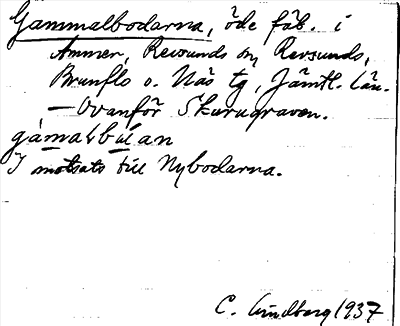 Gammalbodarna, öde fäb. i
Ammer, Revsunds sn, Revsunds,
Brunflo o. Näs tg, Jämtl. län.
— Ovanför Skurugraven.
gámalbúan
I motsats till Nybodarna.
C. Lindberg 1937